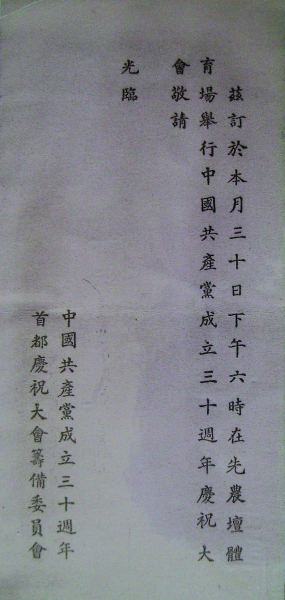 茲訂於本月三十日下午六時在先農壇體
育場舉行中國共產黨成立三十週年慶祝大
會敬請
光臨
中國共產黨成立三十週年
首都慶祝大會籌備委員會